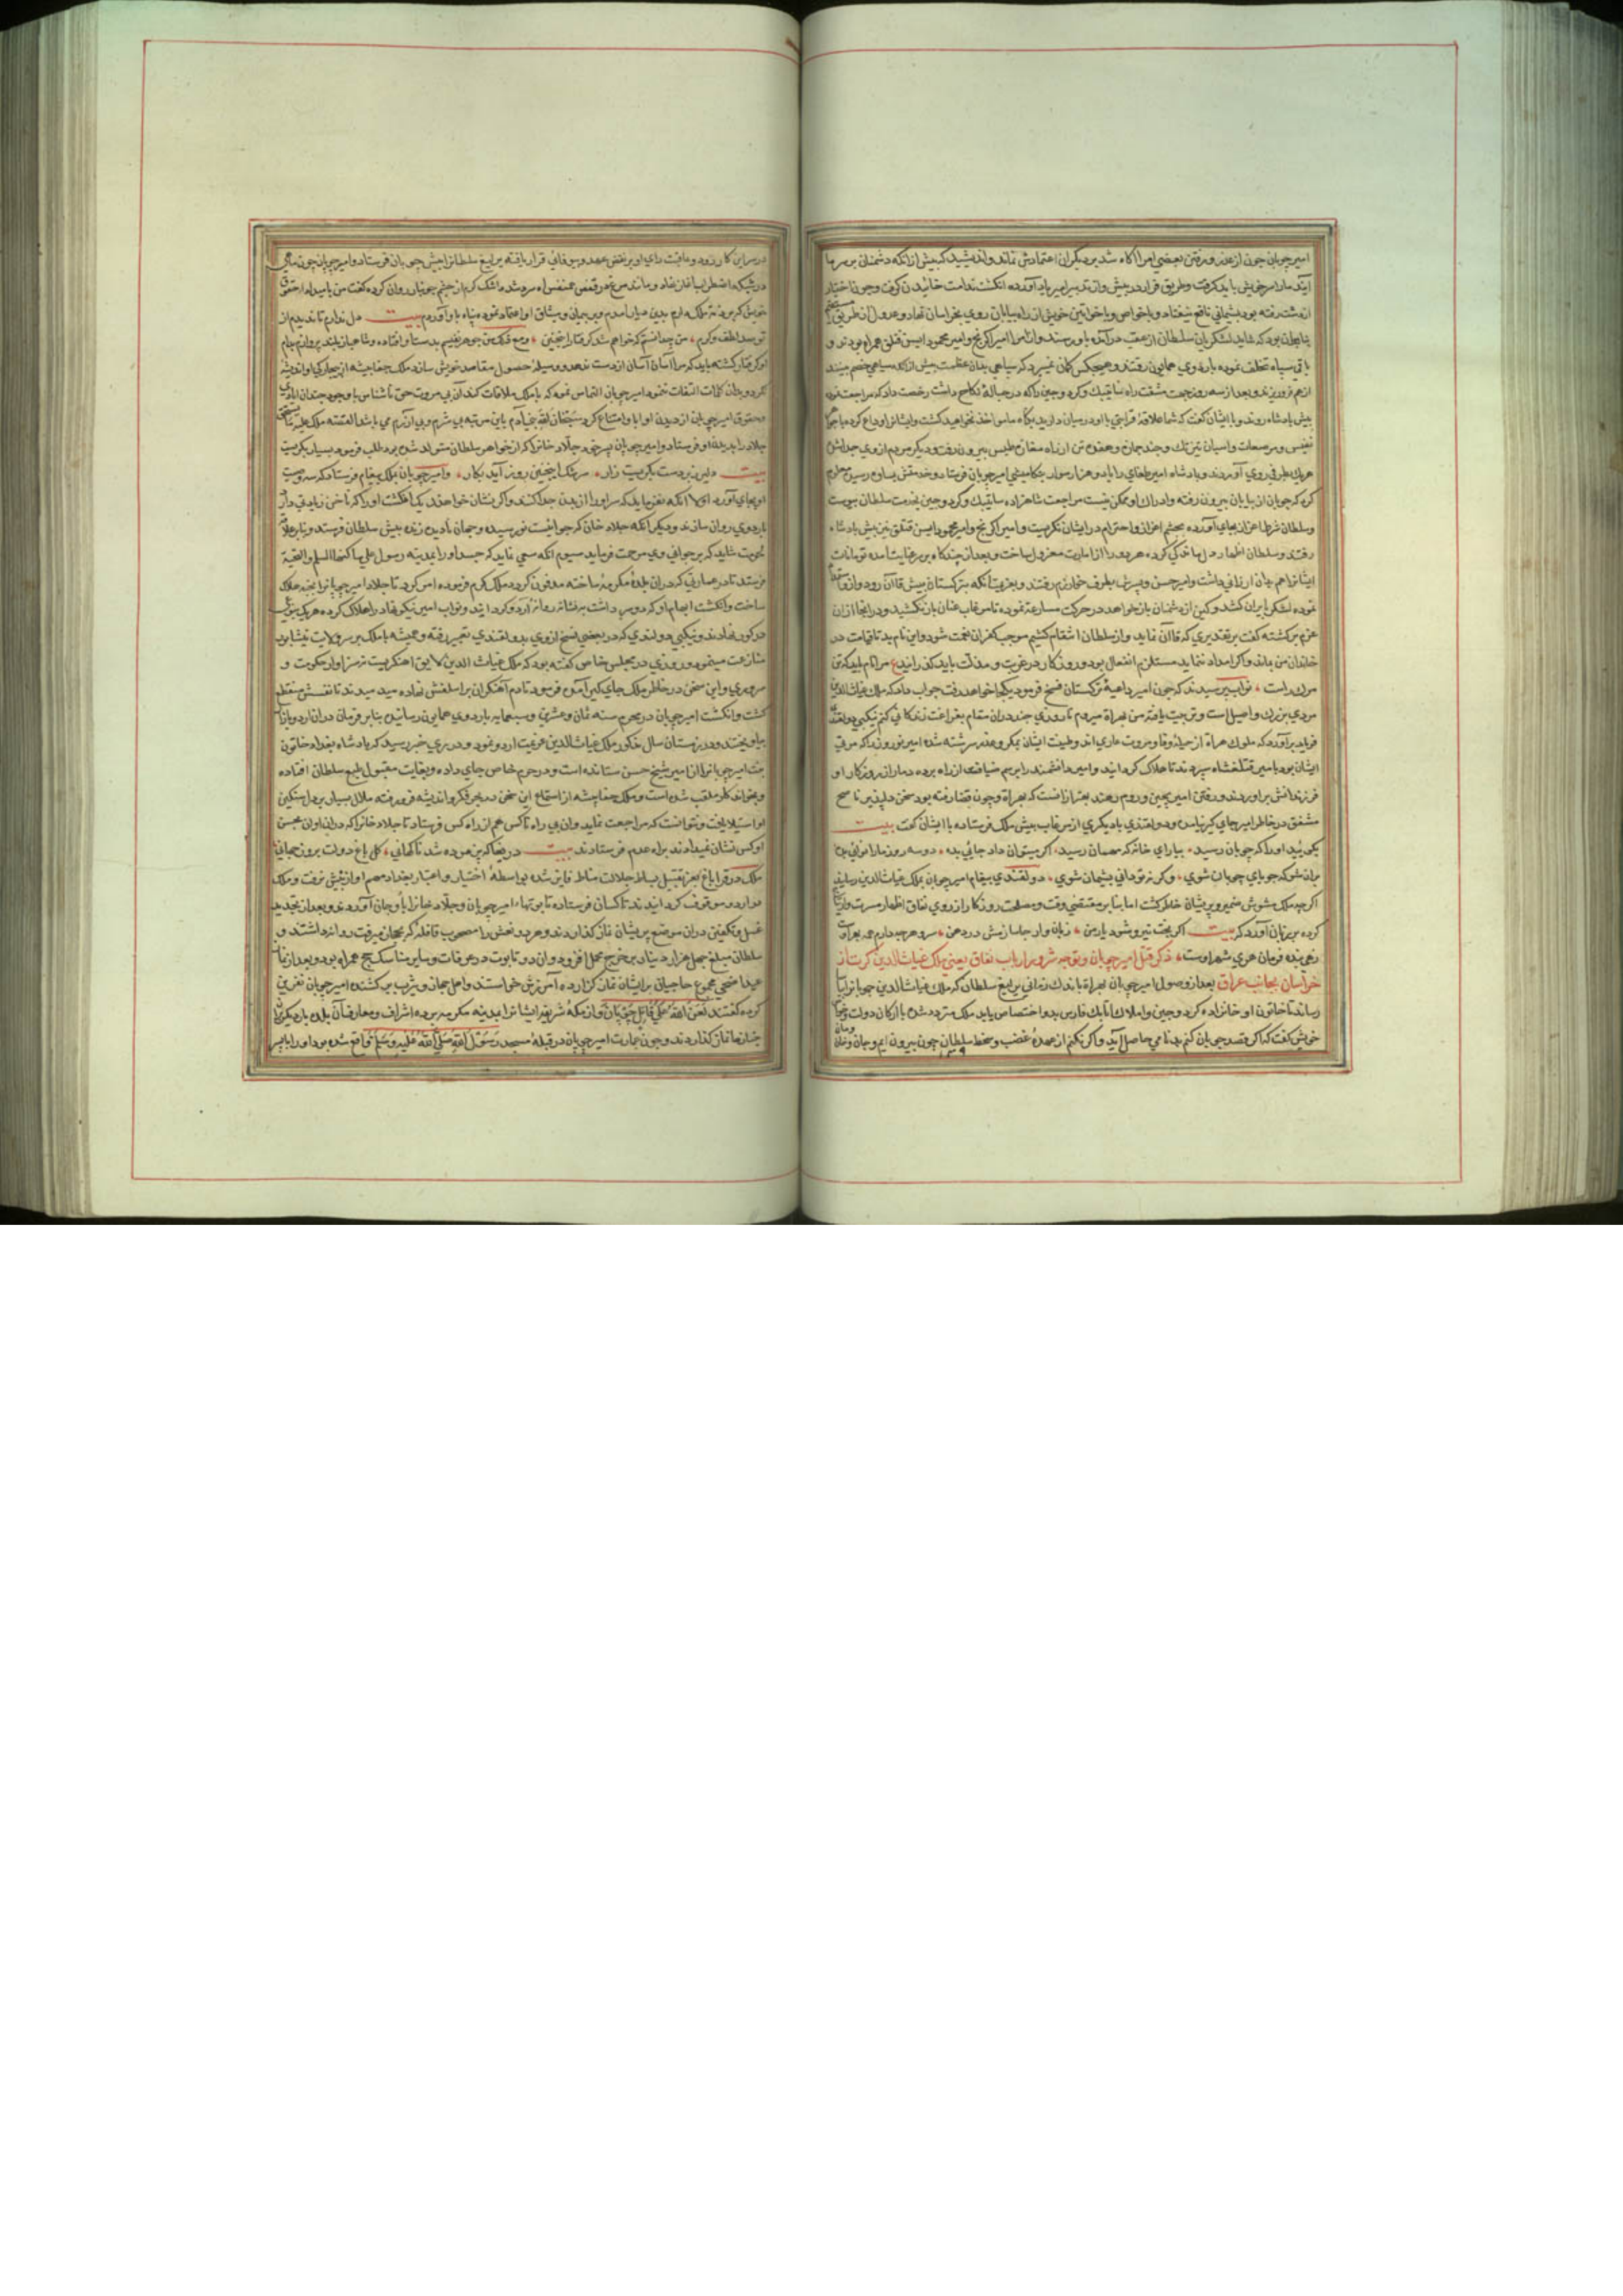 امیرچوبان چون از عذر و رفتن بعضی امرا آکاه شد بر دیکران اعتمادش نماند و اندیشید که پیش از انکه دشمنان بر سر ما
آیند مارا سر خویش باید کرفت و طریق فرار در پیش
از دست رفته بود پشیمانی نافع نیفتاد و با خواص و با خواتین خویش از راه بیابان روی بخراسان نهاد و عدول از طریق
بنابران بود که شاید لشکریان سلطان از عقب درآیند و امیر محمود ایسن قتلغ همراه بودند و
باقی سپاه تخلف نموده باردوی همایون رفتند و هیچکس کمان نمیبرد که سپاهی بدان عظمت پیش از انکه سپاهی خصم بینند
از هم فرو ریزند و بعد از سه روز جهت مشقت راه ساتیبک و کردوجین را که در حباله نکاح داشت رخصت داد که مراجعت نموده
پیش پادشاه روند و با ایشان کفت که شما
نفیس و مرصعات و اسبان و هفده تن از راه مفازه طبس بیرون رفت و دیکر مردم از وی جدا شده
هر یک بطرفی روی آوردند و پادشاه امیر طغای را با دو هزار سوار
کرد که چوبان از بیابان بیرون رفته و ادراک او ممکن نیست مراجعت شاهزاده ساتیبک و کردوجین بخدمت سلطان پیوست
و سلطان شرط اعزاز بجای آورده بچشم اعزاز و احترام در ایشان نکریست و امیر اکرنج و امیر محمود ایسن قتلغ نیز پیش پادشاه
رفتند و سلطان اظهار کرده هر دو را از امارت معزول ساخت و بعد از چندکاه بر سر عنایت آمده تومانات
ایشانرا هم بدان ارزانی داشت و امیر حسن و پسرش بطرف خوارزم رفتند و بعزیمت آنکه بترکستان پیش قاآن رود و ازو
نموده لشکر بایران کشد و کین از دشمنان باز خواهد در حرکت مسارعت نموده تا مرغاب عنان باز نکشید و در انجا از ان
عزم برکشته کفت بر تقدیری که قاآن نماید و از سلطان انتقام کشیم موجب کفران نعمت شود و این نام بد تا قیامت در
خاندان من بماند و اکر امداد ننماید مستلزم انفعال بود و روزکار در غربت و مذلت باید کذرانید ع مرا نام باید که تن
مرک راست نواب پرسیدند که چون امیر داعیه ترکستان فسخ فرمود بکجا خواهد رفت جواب داد که ملک غیاث‌الدین
مردی بزرک و اصیل است و تربیت یافته من بهراة میروم تا روزی چند در ان مقام بفراغت زندکانی کنم
فریاد برآورد که ملوک هراة از حیلهٔ وفا و مروت عاری اند و طینت ایشان بمکر و عذر سرشته شده امیر نوروز را که مربی
ایشان بود بامیر قتلغشاه سپردند تا هلاک کردانید و امیر دانشمند را برسم ضیافت از راه برده دمار از روزکار او
فرزندانش براوردند و رفتن امیر بچین و روم و هند بهتر از انست که بهراة و چون قضا رفته بود سخن دلپذیر ناصح
مشفق در خاطر امیر جای کیر نیامد و دولقندی با دیکری از مرغاب پیش ملک فرستاده با ایشان کفت بیت
بکویید او را که چوبان رسید بیارای خانه که مهمان رسید اکر میتوان داد جایی بده دو سه روز مارا
بران شو که جویای چوبان شوی وکرنه تو دانی پشیمان شوی دولقندی پیغام امیرچوبان بملک غیاث‌الدین رسانید
اکرچه ملک مشوش ضمیر و پریشان خاطر کشت اما بنابر مقتضی وقت و مصلحت روزکار از روی نفاق اظهار مسرت
کرده بر زبان آورد که بیت اکر بخت نیرو شود یار من زبان وار جا سازمش در دهن سر و هرچه دارم همه
رهی بنده فرمان هوی شهر اوست ذکر قتل امیرچوبان و توجه شرور ارباب نفاق یعنی ملک غیاث‌الدین کرت از
خراسان بجانب عراق بعد از وصول امیرچوبان بهراة باندک زمانی یرلیغ سلطان که ملک غیاث‌الدین چوبانرا بیاسا
رساند تا خاتون او خانزاده کردوجین و املاک اتابک فارس بدو اختصاص یابد ملک متردد شده با ارکان دولت
خویش کفت که اکر قصد چوبان کنم بدنامی حاصل آید و اکر نکنم از عهدهٔ غضب و سخط سلطان چون بیرون آیم
در سر این کار رود و عاقبت رای او بر نقض عهد و بیوفائی قرار یافته یرلیغ سلطانرا پیش چوبان فرستاد و امیرچوبان چون ماهی
در شبکه اضطراب آغاز نهاد و مانند مرغ در قفس
ملک دارم بدین دیار آمدم و بر پیمان و میثاق او اعتماد نموده پناه باو آوردم بیت دل ندارم
تو سد لطف و کرم من چه دانستم که خواهم شد کرفتار اینچنین
او کرفتار کشته باید که مرا آسان آسان از دست ندهد و وسیلهٔ حصول مقاصد خویش سازد ملک جفاپیشه
بدان کلمات التفات ننمود امیرچوبان التماس نمود که با ملک ملاقات کند آن بی مروت حق ناشناس با وجود چندان
و حقوق امیرچوبانی از دیدن او ابا و امتناع کرد سبحان الله بنی آدم باین مرتبه بی شرم و بی آزرم می باشد القصه ملک
جلاد را بدیدن او فرستاد و امیرچوبان پسر خود جلاو خانرا که از خواهر سلطان متولد شده بود طلب فرمود بسیار بکریست
بیت دلیرزبردست بکریست زار سرشک اینچنین روز آید بکار و امیرچوبان بملک پیغام فرستاد که سه وصیت
او بجای آورد اولا انکه نفرماید که سر او را از بدن جدا کنند و اکر نشان خواهند یک انکشت او را که ناخن زیادتی دارد
باردوی روان سازند و دیکر آنکه جلاو خان که جوانیست نورسیده و جهان نادیده زنده پیش سلطان فرستد
شاید که بر جوانی وی مرحمت فرماید سیوم آنکه سعی نماید که جسد او را بمدینه رسول علی ساکنها السلام والتحیة
فرستد تا در عمارتی که در ان بلدهٔ مکرمه ساخته مدفون کردد ملک کرم فرموده امر کرد تا جلاد امیرچوبانرا بخبه هلاک
ساخت و انکشت ابهام او که دو سر داشت بنشانه روانه اردو کردانید و نواب امیر نیکو نهاد را هلاک کرده هر یک
در کور نهادند و نیکپی دولقندی که در بعضی نسخ از وی بدولقندی تعبیر رفته و همیشه با ملک بر سر ولایت نیشابور
منازعت مینمود و روزی در مجلس خاص کفته بود که ملک غیاث الدین لایق آهنکریست نه سزاوار حکومت و
سروری و این سخن در خاطر ملک جای کیر آمده فرمود تا دم آهنکران بر اسفلش نهاده میدمیدند تا نفسش منقطع
کشت و انکشت امیرچوبان در محرم سنه ثمان و عشرین و سبعمایه باردوی همایون رسانیده بنابر فرمان در ان اردو بازار
بیاویختند و در زمستان سال مذکور ملک غیاث‌الدین عزیمت اردو نمود و در ری خبر رسید که پادشاه بغداد خاتون
بنت امیرچوبانرا از امیر شیخ حسن ستانده است و در حرم خاص جای داده و بغایت مقبول طبع سلطان افتاده
و بخواندکار ملقب شده است و ملک جفاپیشه از استماع این سخن در بحر فکر و اندیشه فرو رفته ملال بسیار بر دل سنکین
او استیلا یافت و نتوانست که مراجعت نماید و ان بی راه ناکس هم از راه کس فرستاد تا جلاو خانرا که در ان اوان
او کس نشان نمیدادند براه عدم فرستادند بیت دریغا که پژمرده شد ناکهانی کل باغ دولت بروز جوانی
ملک در قراباغ بعز تقبیل بساط جلالت مناط فایز شده بواسطهٔ اختیار و اعتبار بغداد مهم او از پیش نرفت و ملک
در اردو موقوف کردانیدند تا کسان فرستاده تابوتهای امیرچوبان و جلاو خانرا باوجان آوردند و بعد از تجدید
غسل و تکفین در ان موضع بر یشان نماز کذاردند و هر دو نعش را مصحوب قافله که بحجاز میرفت روانه داشتند و
سلطان مبلغ چهل هزار دینار بر خرج محمل افزود و ان دو تابوت در عرفات و سایر مناسک حج همراه بود و بعد از نماز
عید اضحی مجموع حاجیان بر ایشان نماز کزارده آمرزش خواستند و اهل حجاز و یثرب بر کشنده امیرچوبان نفرین
کرده کفتند لَعَنَ اللّه عَلی قَاتِل چُوپَان و از مکهٔ شریفه ایشانرا بمدینه مکرمه برده اشراف و معارف آن بلده بار دیکر
نماز کذاردند و چون عمارت امیرچوبان در قبلهٔ مسجد رَسُول اللّه صَلَّی اللّه عَلَیه وَسَلَّم واقع شده بود